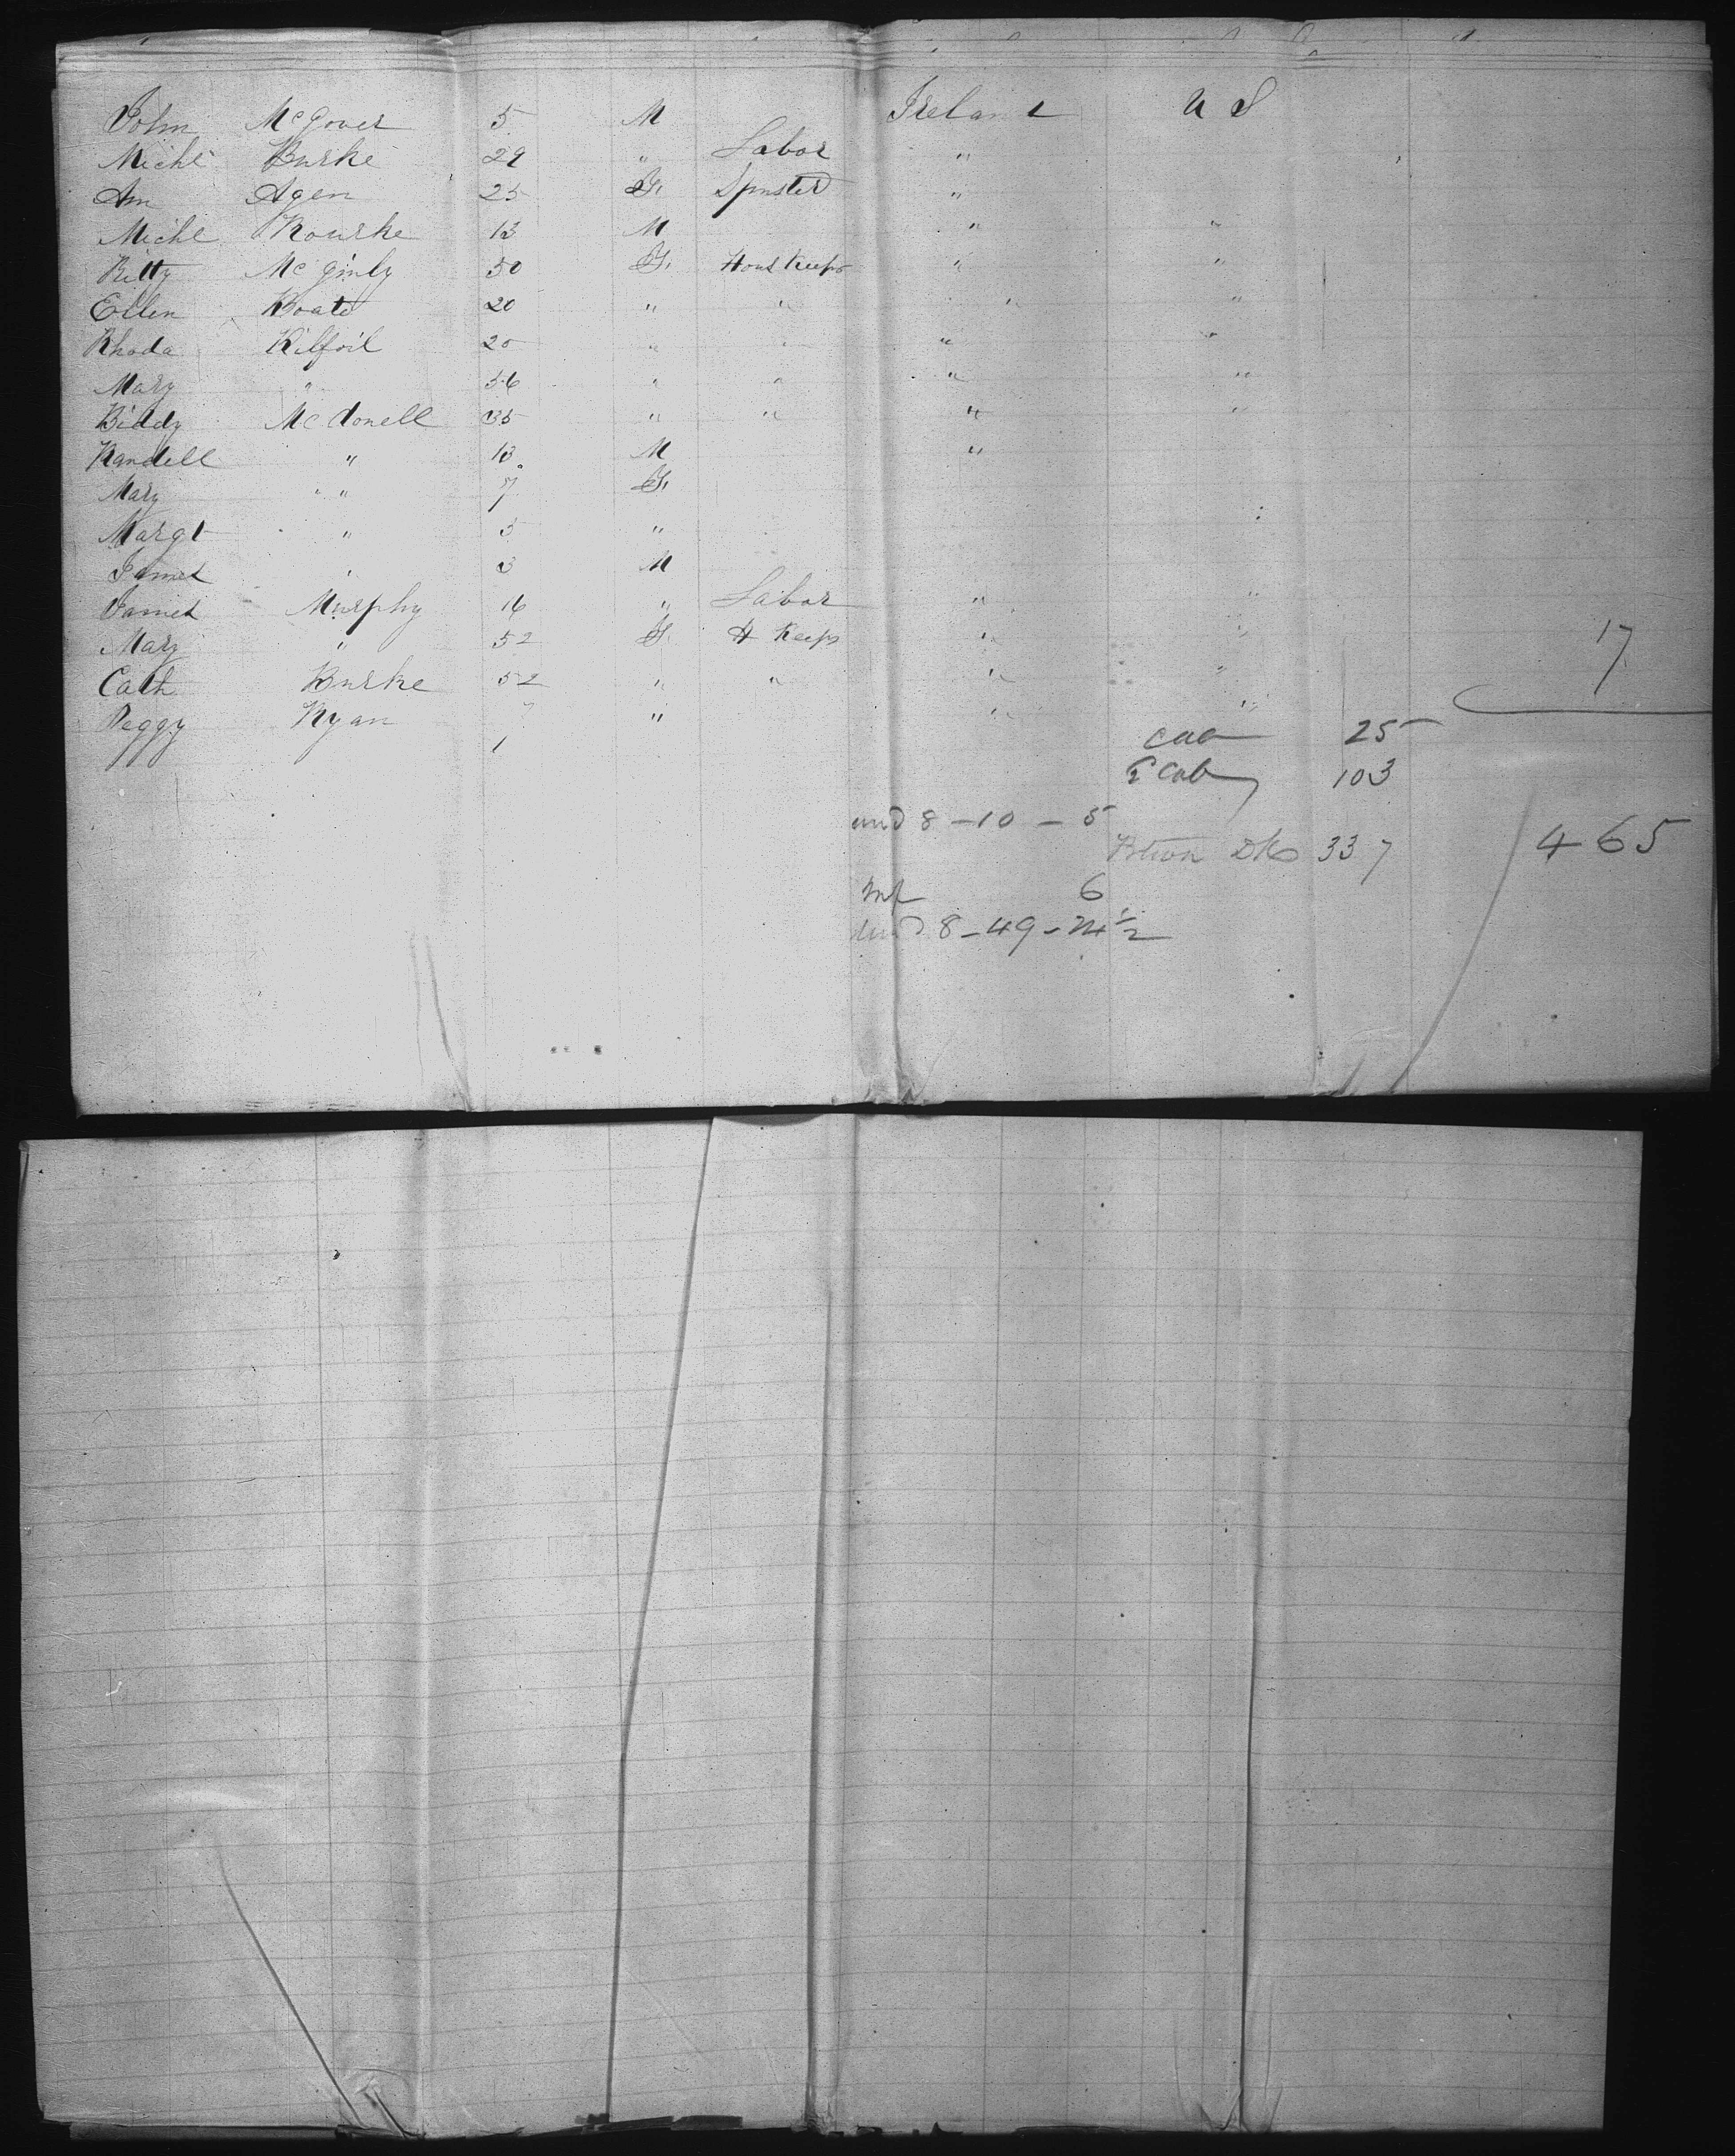 John McGover 5 M Ireland U S
Michl Burke 29 " Labor "
Ann Agen 25 F. Spinster "
Michl Rourke 13 M " "
Bitty McGinly 50 F. Hous Keepr " "
Ellen Boate 20 " " " "
Rhoda Kilfoil 20 " " " "
Mary " 56 " " " "
Biddy McDonell 35 " " " "
Randell " 13 M "
Mary " 7 F.
Margt " 3 "
James " 3 M
James Murphy 16 " Labor " "
Mary " 52 F. H Keepr " " 17
Cath Burke 52 " " " "
Peggy Ryan 7 " " "
Cab 25
2 Cab 103
und 8 - 10 - 5
337 465
Inf 6
und 8 - 49 - 24 1/2